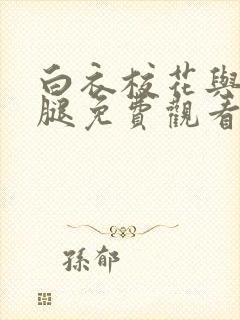 白衣校花與
腿免費觀看
孫郁